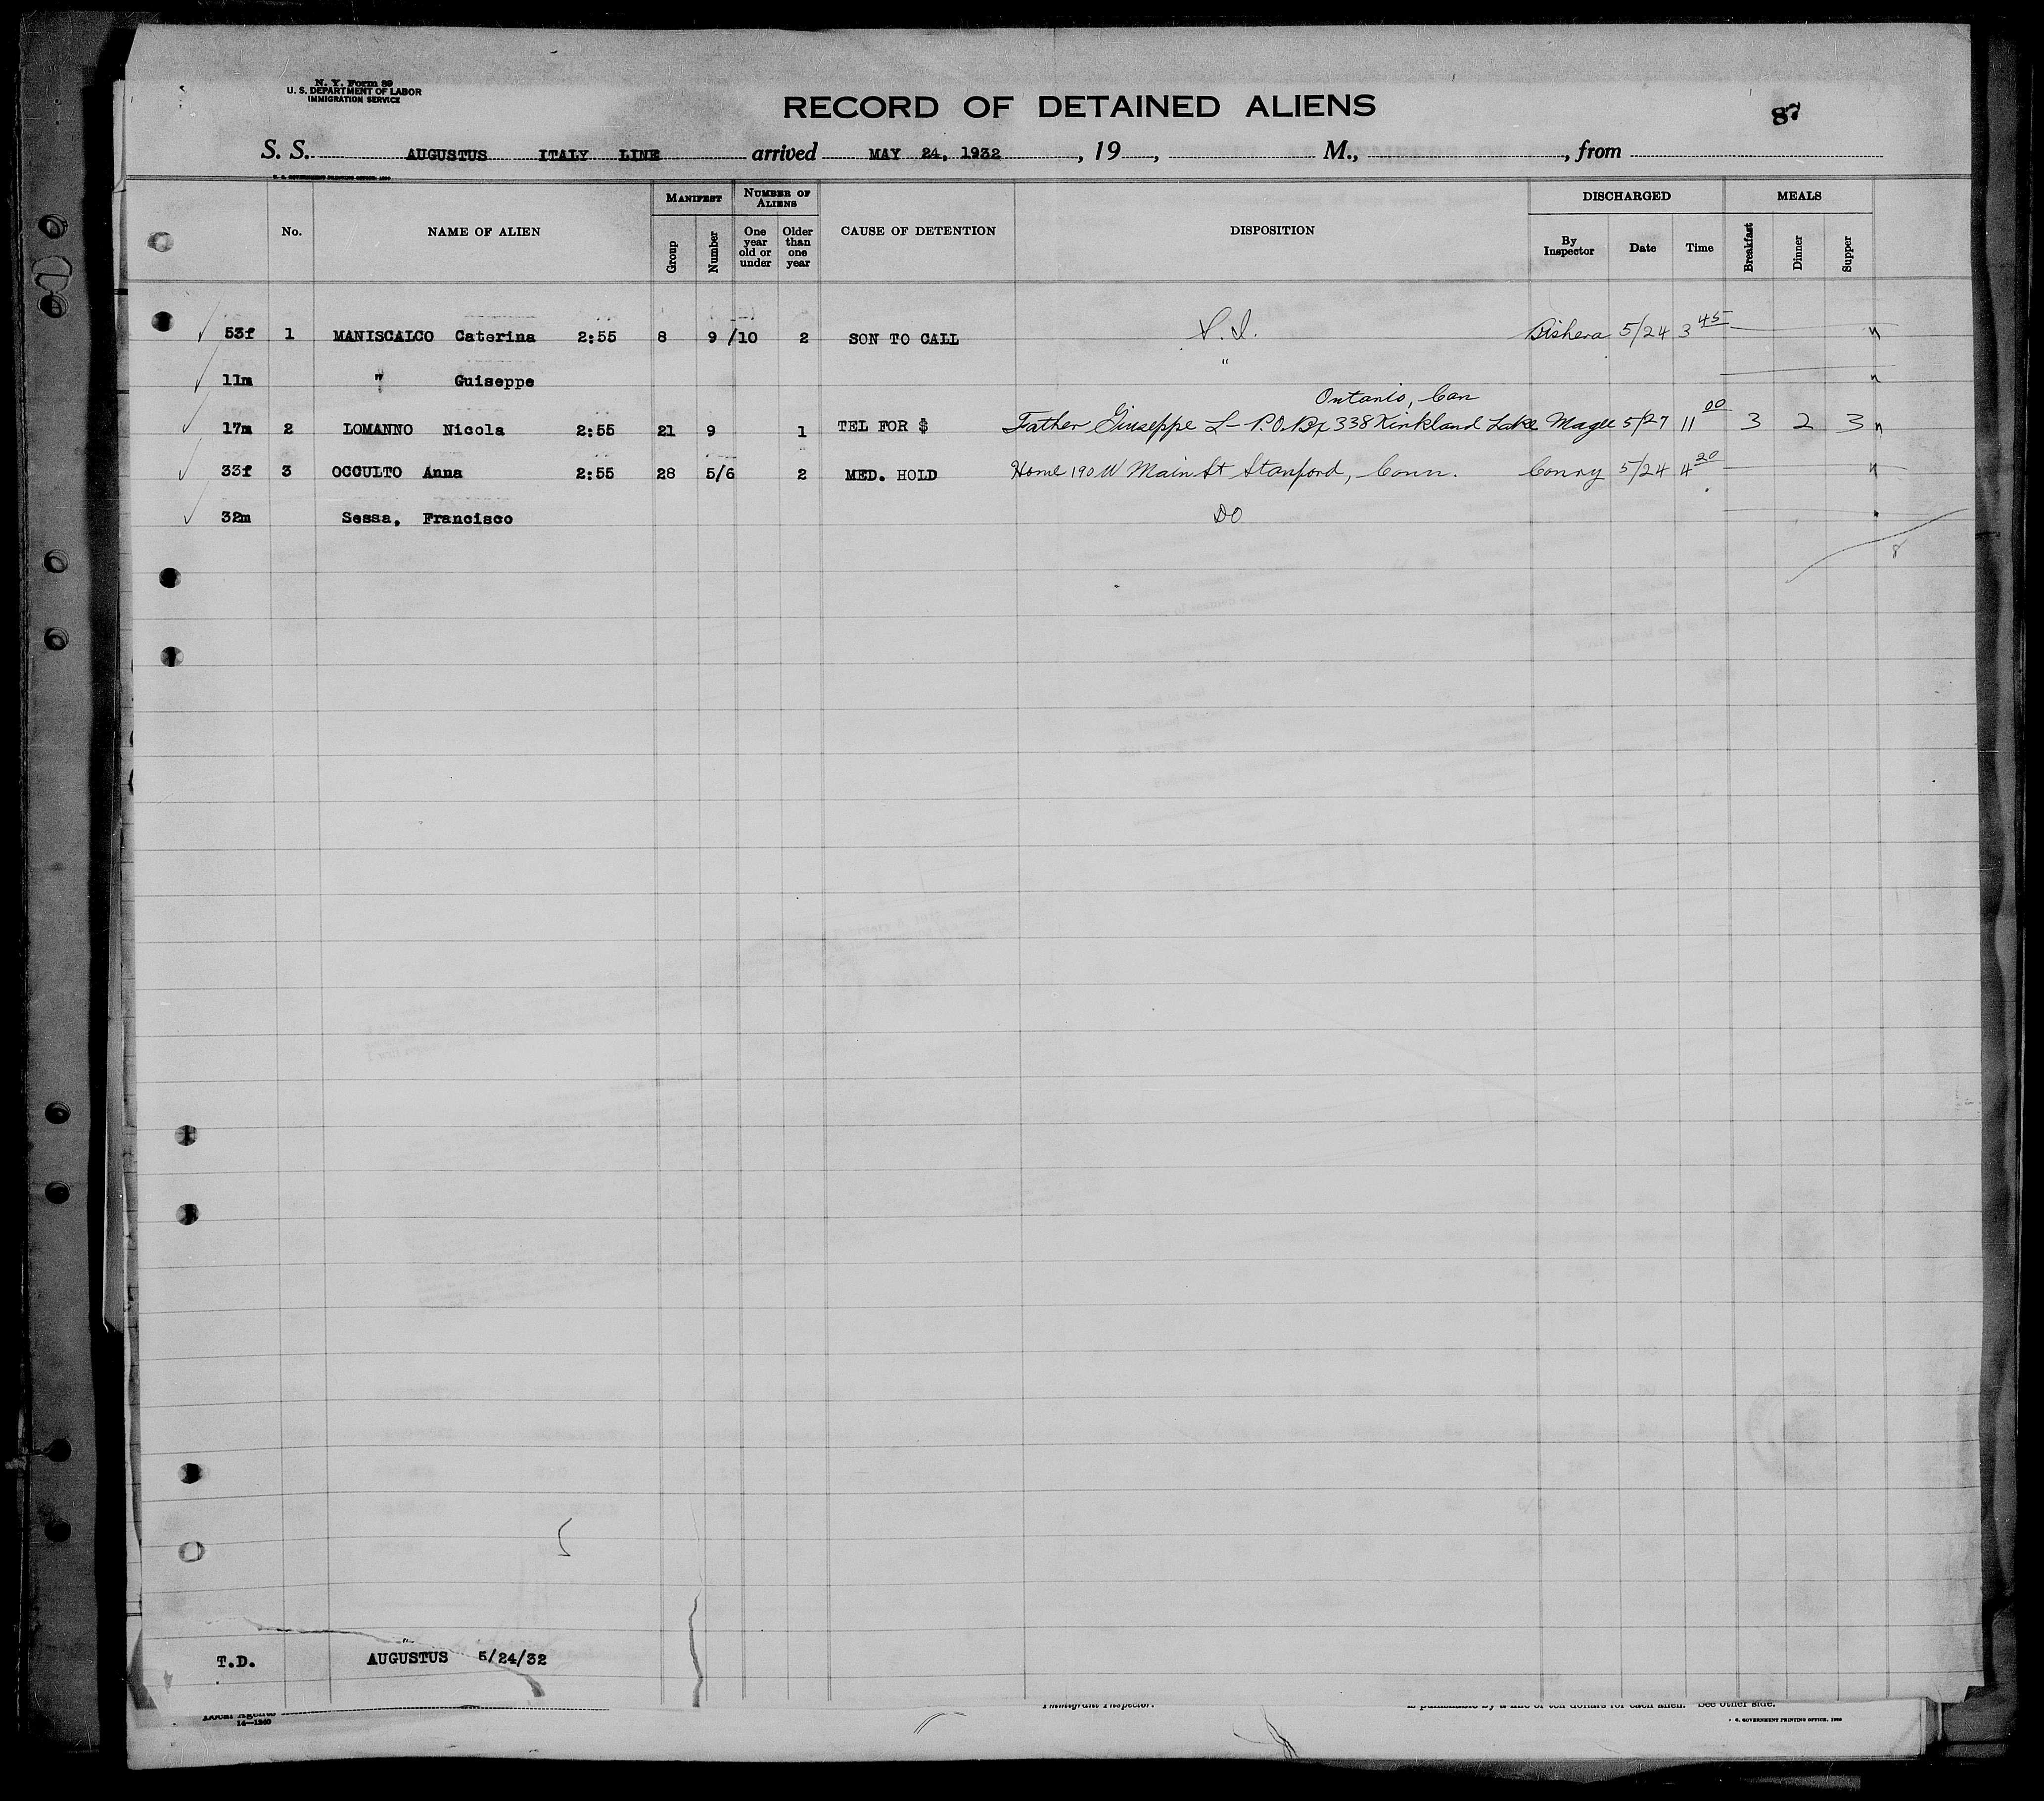 N. Y. Form 89
U. S. DEPARTMENT OF LABOR
IMMIGRATION SERVICE
RECORD OF DETAINED ALIENS
87
S. S. AUGUSTUS ITALY LINE arrived MAY 24, 1932, 19 , M., , from
U. S. GOVERNMENT PRINTING OFFICE: 1930
No. NAME OF ALIEN MANIFEST Group Number NUMBER OF ALIENS One year old or under Older than one year CAUSE OF DETENTION DISPOSITION DISCHARGED By Inspector Date Time MEALS Breakfast Dinner Supper
53f 1 MANISCALCO Caterina 2:55 8 9/10 2 SON TO CALL 5/24 3 45
11m " Guiseppe "
Ontario, Can
17m 2 LOMANNO Nicola 2:55 21 9 1 TEL FOR $ Father Giuseppe L- P.O. Bx 338 Kirkland Lake Magee 5/27 11 00 3 2 3
33f 3 OCCULTO Anna 2:55 28 5/6 2 MED. HOLD Home 190 W Main St Stanford, Conn. Conry 5/24 4 20
32m Sessa, Francisco DO
8
T.D. AUGUSTUS 5/24/32
Immigrant Inspector. is punishable by a fine of ten dollars for each alien. See other side.
14—1240
U. S. GOVERNMENT PRINTING OFFICE. 1930